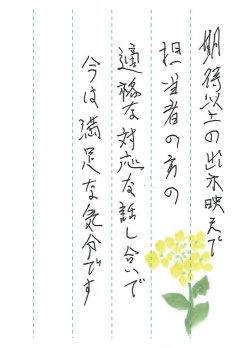 期待以上の出来映えで
担当者の方の
適格な対応な話し合いで
今は満足な気分です